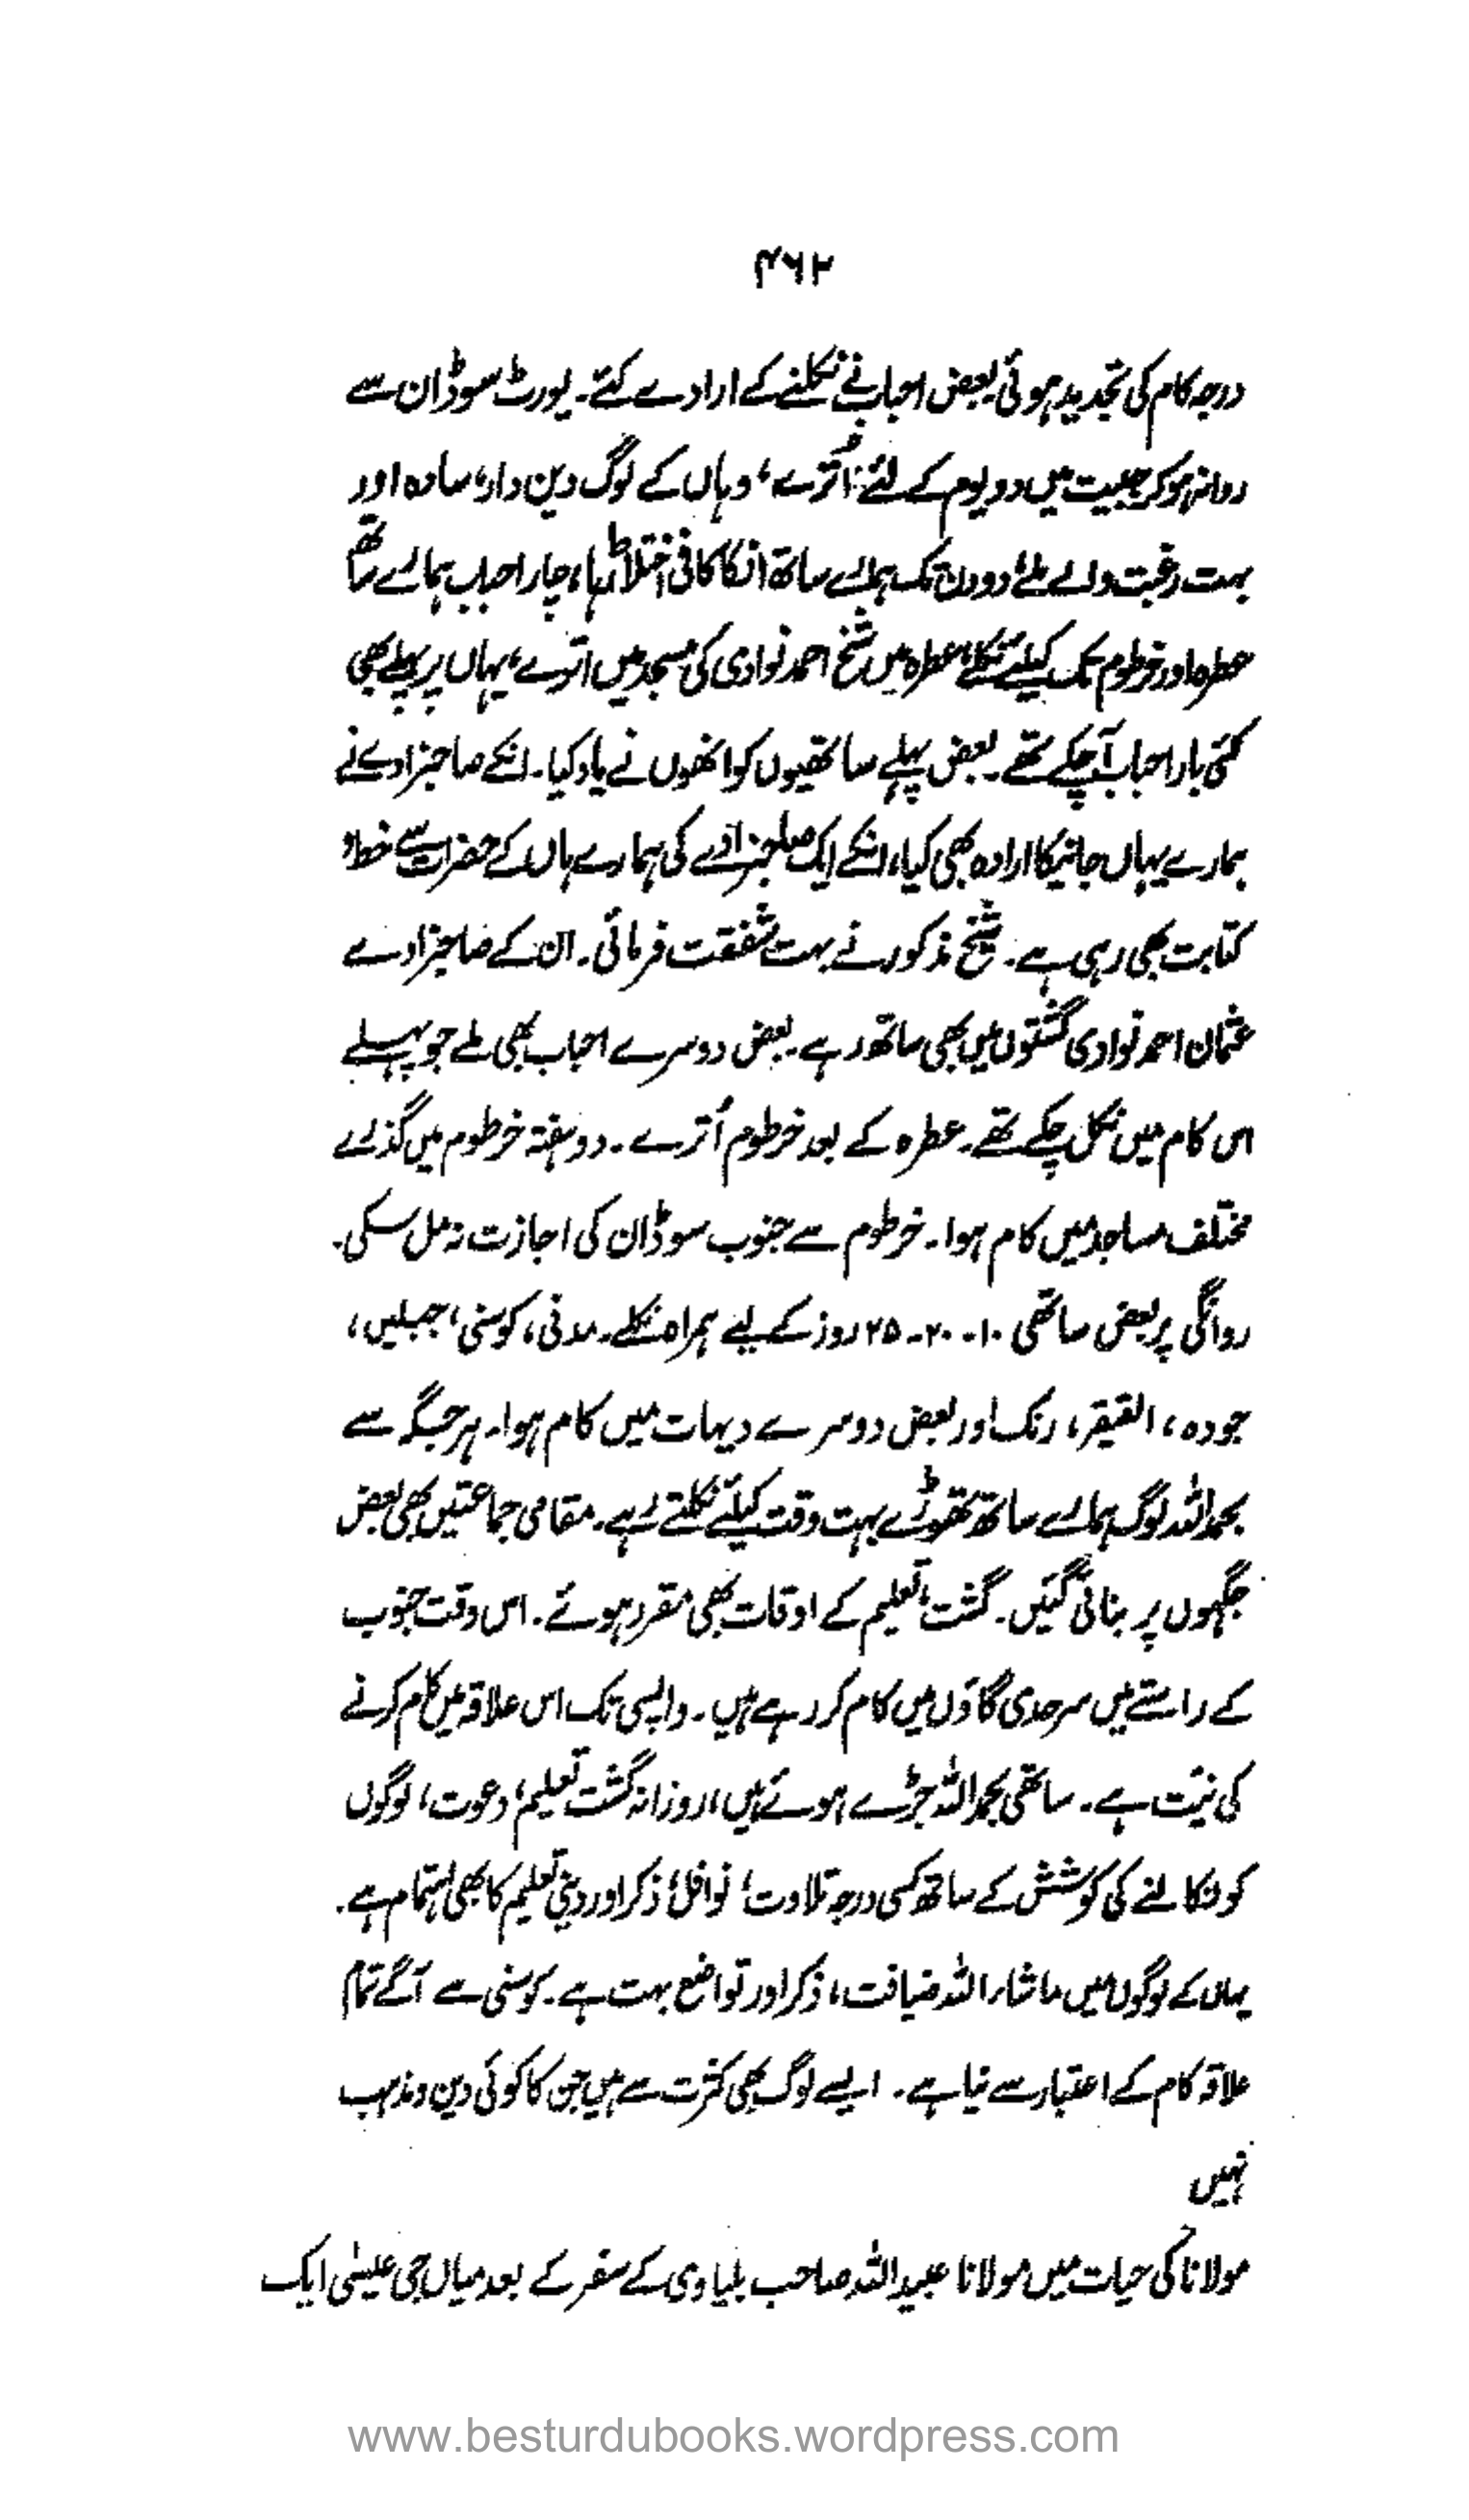 ۴۶۲
درجہ کام کی تجدید ہوئی۔ بعض احباب نے نکلنے کے ارادے کئے۔ پورٹ سوڈان سے
روانہ ہو کر میں دو یوم کے لئے اُترے، وہاں کے لوگ دین دار، سادہ اور
بہت رغبت والے ملے، دو دن تک ہمارے ساتھ انکا کافی اختلاط رہا، چار احباب ہمارے ساتھ
عطرہ اور خرطوم تک کیلئے نکلے، عطرہ میں شیخ احمد نوادی کی مسجد میں اترے، یہاں پر پہلے بھی
کئی بار احباب آچکے تھے۔ بعض پہلے ساتھیوں کو انھوں نے یاد کیا۔ انکے صاحبزادے نے
ہمارے یہاں جانیکا ارادہ بھی کیا، انکے ایک صاحبزادے کی ہمارے ہاں کے حضرات سے خط و
کتابت بھی رہی ہے۔ شیخ مذکور نے بہت شفقت فرمائی۔ ان کے صاحبزادے
عثمان احمد نوادی گشتوں میں بھی ساتھ رہے۔ بعض دوسرے احباب بھی ملے جو پہلے
اس کام میں نکل چکے تھے۔ عطرہ کے بعد خرطوم اُترے۔ دو ہفتہ خرطوم میں گذرے
مختلف مساجد میں کام ہوا۔ خرطوم سے جنوب سوڈان کی اجازت نہ مل سکی۔
روانگی پر بعض ساتھی ۱۰۔ ۲۰۔ ۲۵ روز کے لیے ہمراہ نکلے۔ مدنی، کوسنی، جبلین،
جودہ، القیقر، رنک اور بعض دوسرے دیہات میں کام ہوا۔ ہر جگہ سے
بحمداللہ لوگ ہمارے ساتھ تھوڑے بہت وقت کیلئے نکلتے رہے۔ مقامی جماعتیں بھی بعض
جگہوں پر بنائی گئیں۔ گشت، تعلیم کے اوقات بھی مقرر ہوئے۔ اس وقت جنوب
کے راستے میں سرحدی گاؤں میں کام کر رہے ہیں۔ واپسی تک اس علاقہ میں کام کرنے
کی نیت ہے۔ ساتھی بحمداللہ جڑے ہوئے ہیں، روزانہ گشت، تعلیم، دعوت، لوگوں
کو نکالنے کی کوشش کے ساتھ کسی درجہ تلاوت، نوافل، ذکر اور دینی تعلیم کا بھی اہتمام ہے۔
یہاں کے لوگوں میں ماشاراللہ ضیافت، ذکر اور تواضع بہت ہے۔ کوسنی سے آگے تمام
علاقہ کام کے اعتبار سے نیا ہے۔ ایسے لوگ بھی کثرت سے ہیں جن کا کوئی دین و مذہب
نہیں
مولاناؒ کی حیات میں مولانا عبید اللہ صاحب بلیاوی کے سفر کے بعد میاں جی عیسیٰ ایک
www.besturdubooks.wordpress.com